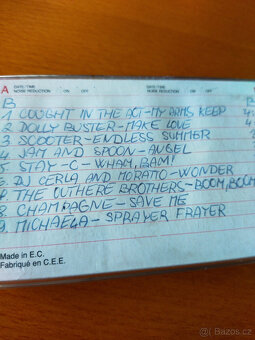 A DATE/TIME DATE/TIME
NOISE REDUCTION ON OFF NOISE REDUCTION ON OFF
B B
1 COUGHT IN THE ACT-MY ARMS KEEP
2 DOLLY BUSTER-MAKE LOVE
3 SCOOTER-ENDLESS SUMMER
4 JAM AND SPOON-ANGEL
5 STAY-C-WHAM, BAM!
6 DJ CERLA AND MORATTO-WONDER
7 THE OUTHERE BROTHERS-BOOM, BOOM
8 CHAMPAGNE-SAVE ME
9. MICHAELA-SPRAYER FRAYER
Made in E.C.
Fabriqué en C.E.E.
Bazos.cz